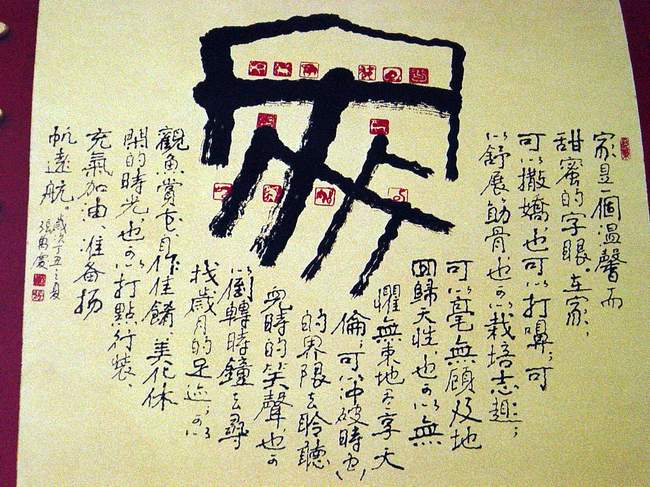 家
家是一個溫馨而
甜蜜的字眼,在家,
可以撒嬌也可以打嚊;可
以舒展筋骨也可以栽培志趣;
可以毫無顧及地
回歸天性,也可以無
懼無束地尽享天
倫,可以冲破時
的界限去聆聽
兒時的笑聲,也可
以倒轉時鐘去尋
找歲月的足迹;可以
觀魚賞花、自作佳餚、美化休
閑的時光,也可以打點行裝、
充氣加油、准备扬
帆遠航。
歲次丁丑之夏
張